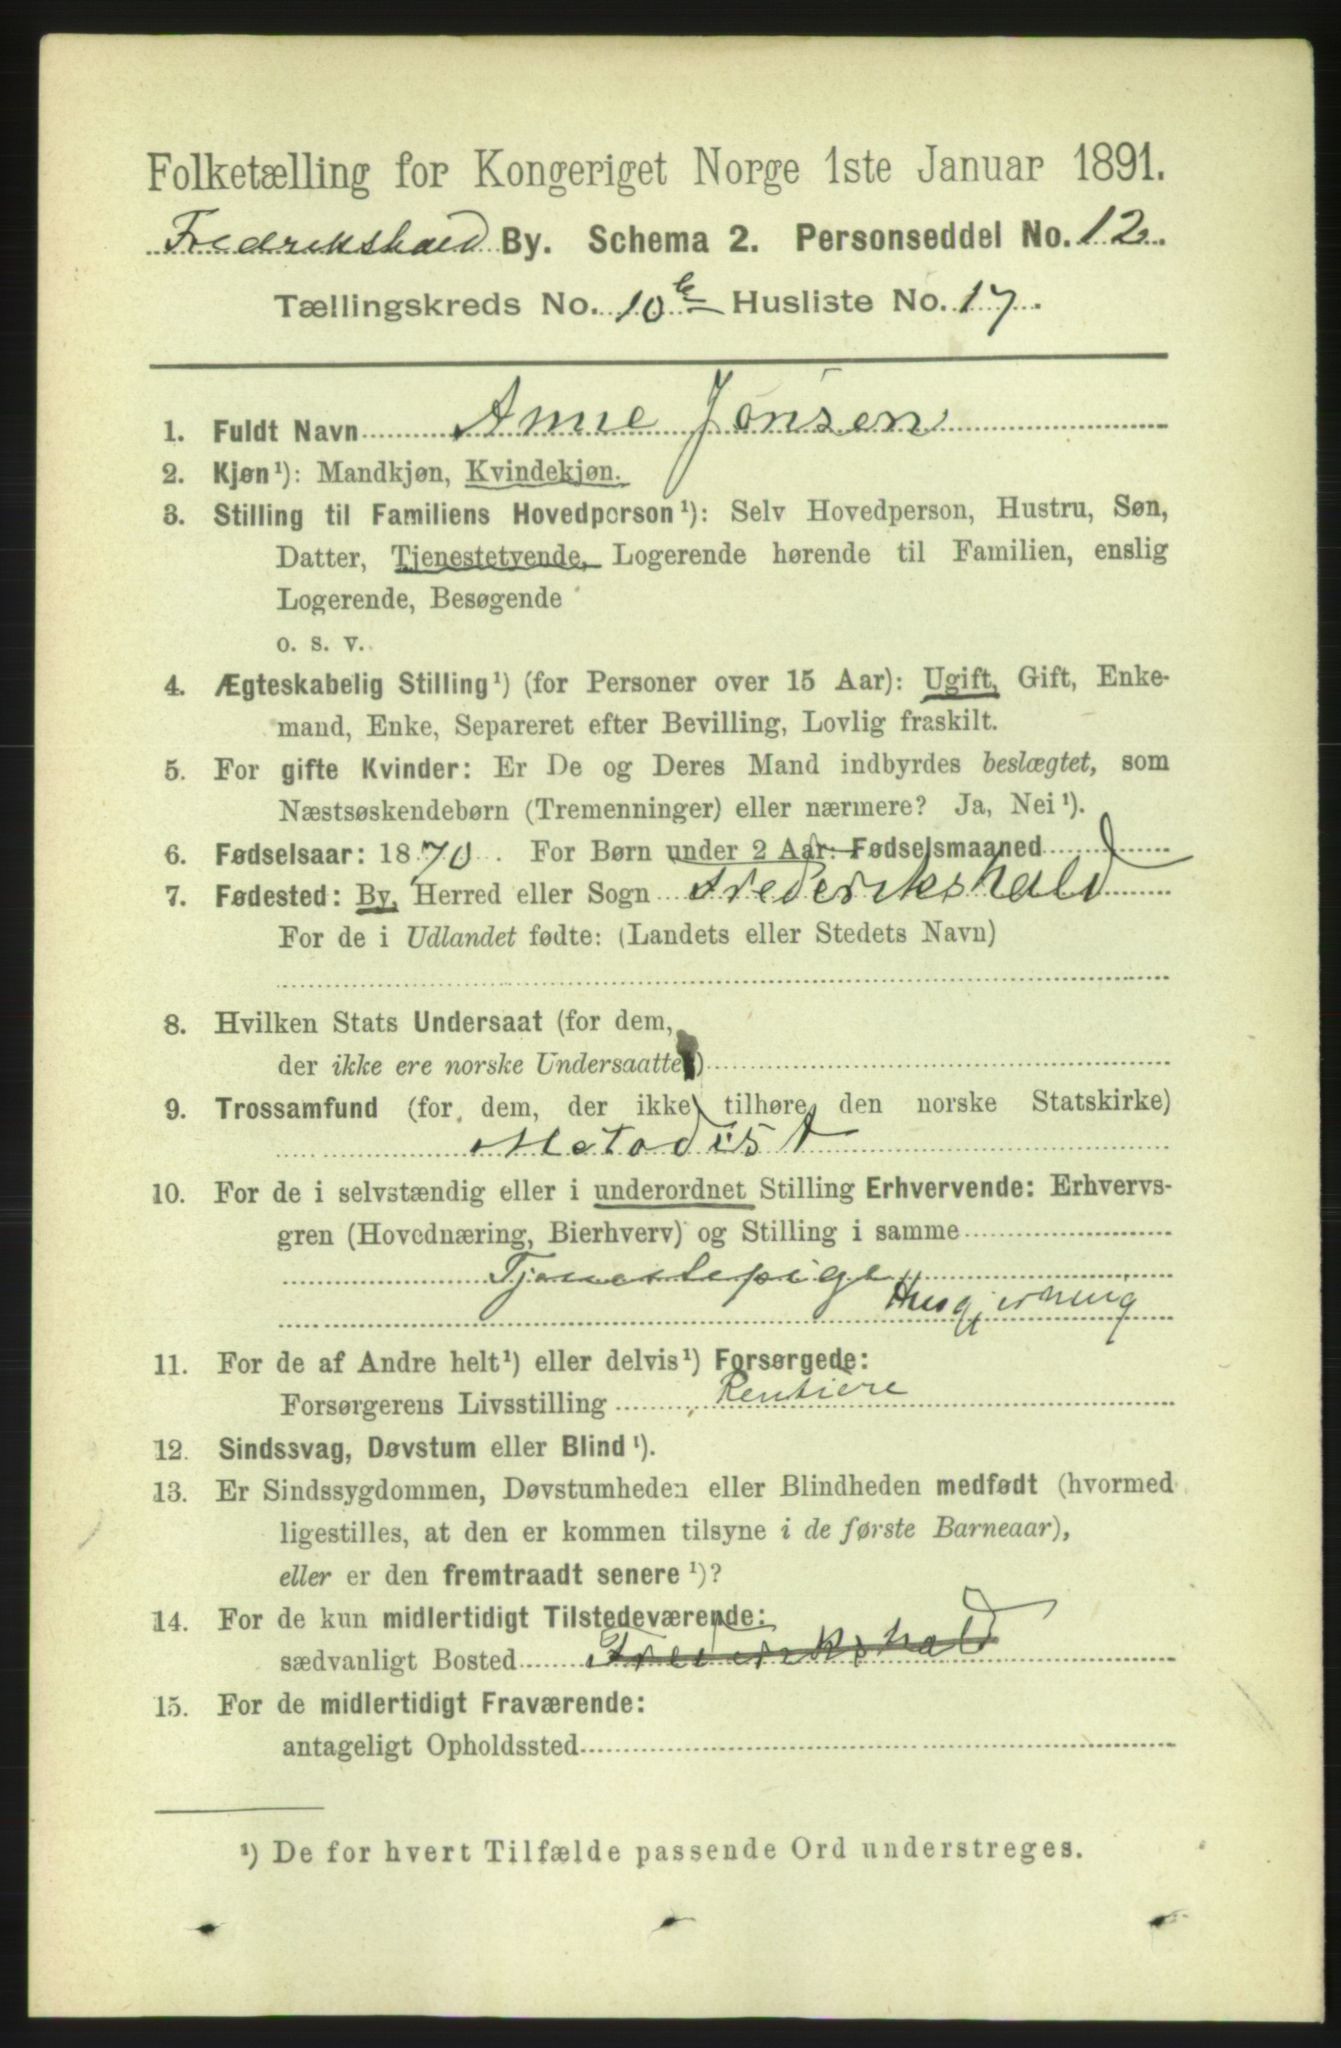 Folketælling for Kongeriget Norge 1ste Januar 1891.
Fredrikshald By. Schema 2. Personseddel No. 12.
Tællingskreds No. 10 Husliste No. 17.
1. Fuldt Navn Anne Jonsen
2. Kjøn¹): Mandkjøn, Kvindekjøn.
3. Stilling til Familiens Hovedperson¹): Selv Hovedperson, Hustru, Søn,
Datter, Tjenestetyende, Logerende hørende til Familien, enslig
Logerende, Besøgende
o. s. v.
4. Ægteskabelig Stilling¹) (for Personer over 15 Aar): Ugift, Gift, Enke-
mand, Enke, Separeret efter Bevilling, Lovlig fraskilt.
5. For gifte Kvinder: Er De og Deres Mand indbyrdes beslægtet, som
Næstsøskendebørn (Tremenninger) eller nærmere? Ja, Nei¹).
6. Fødselsaar: 1870. For Børn under 2 Aar: Fødselsmaaned
7. Fødested: By, Herred eller Sogn Frederikshald
For de i Udlandet fødte: (Landets eller Stedets Navn)
8. Hvilken Stats Undersaat (for dem,
der ikke ere norske Undersaatter)
9. Trossamfund (for dem, der ikke tilhøre den norske Statskirke)
Metodist
10. For de i selvstændig eller i underordnet Stilling Erhvervende: Erhvervs-
gren (Hovednæring, Bierhverv) og Stilling i samme
Tjenestepige
Husgjerning
11. For de af Andre helt¹) eller delvis¹) Forsørgede:
Forsørgerens Livsstilling Rentiere
12. Sindssvag, Døvstum eller Blind¹).
13. Er Sindssygdommen, Døvstumheden eller Blindheden medfødt (hvormed
ligestilles, at den er kommen tilsyne i de første Barneaar),
eller er den fremtraadt senere¹)?
14. For de kun midlertidigt Tilstedeværende:
sædvanligt Bosted Frederikshald
15. For de midlertidigt Fraværende:
antageligt Opholdssted
¹) De for hvert Tilfælde passende Ord understreges.